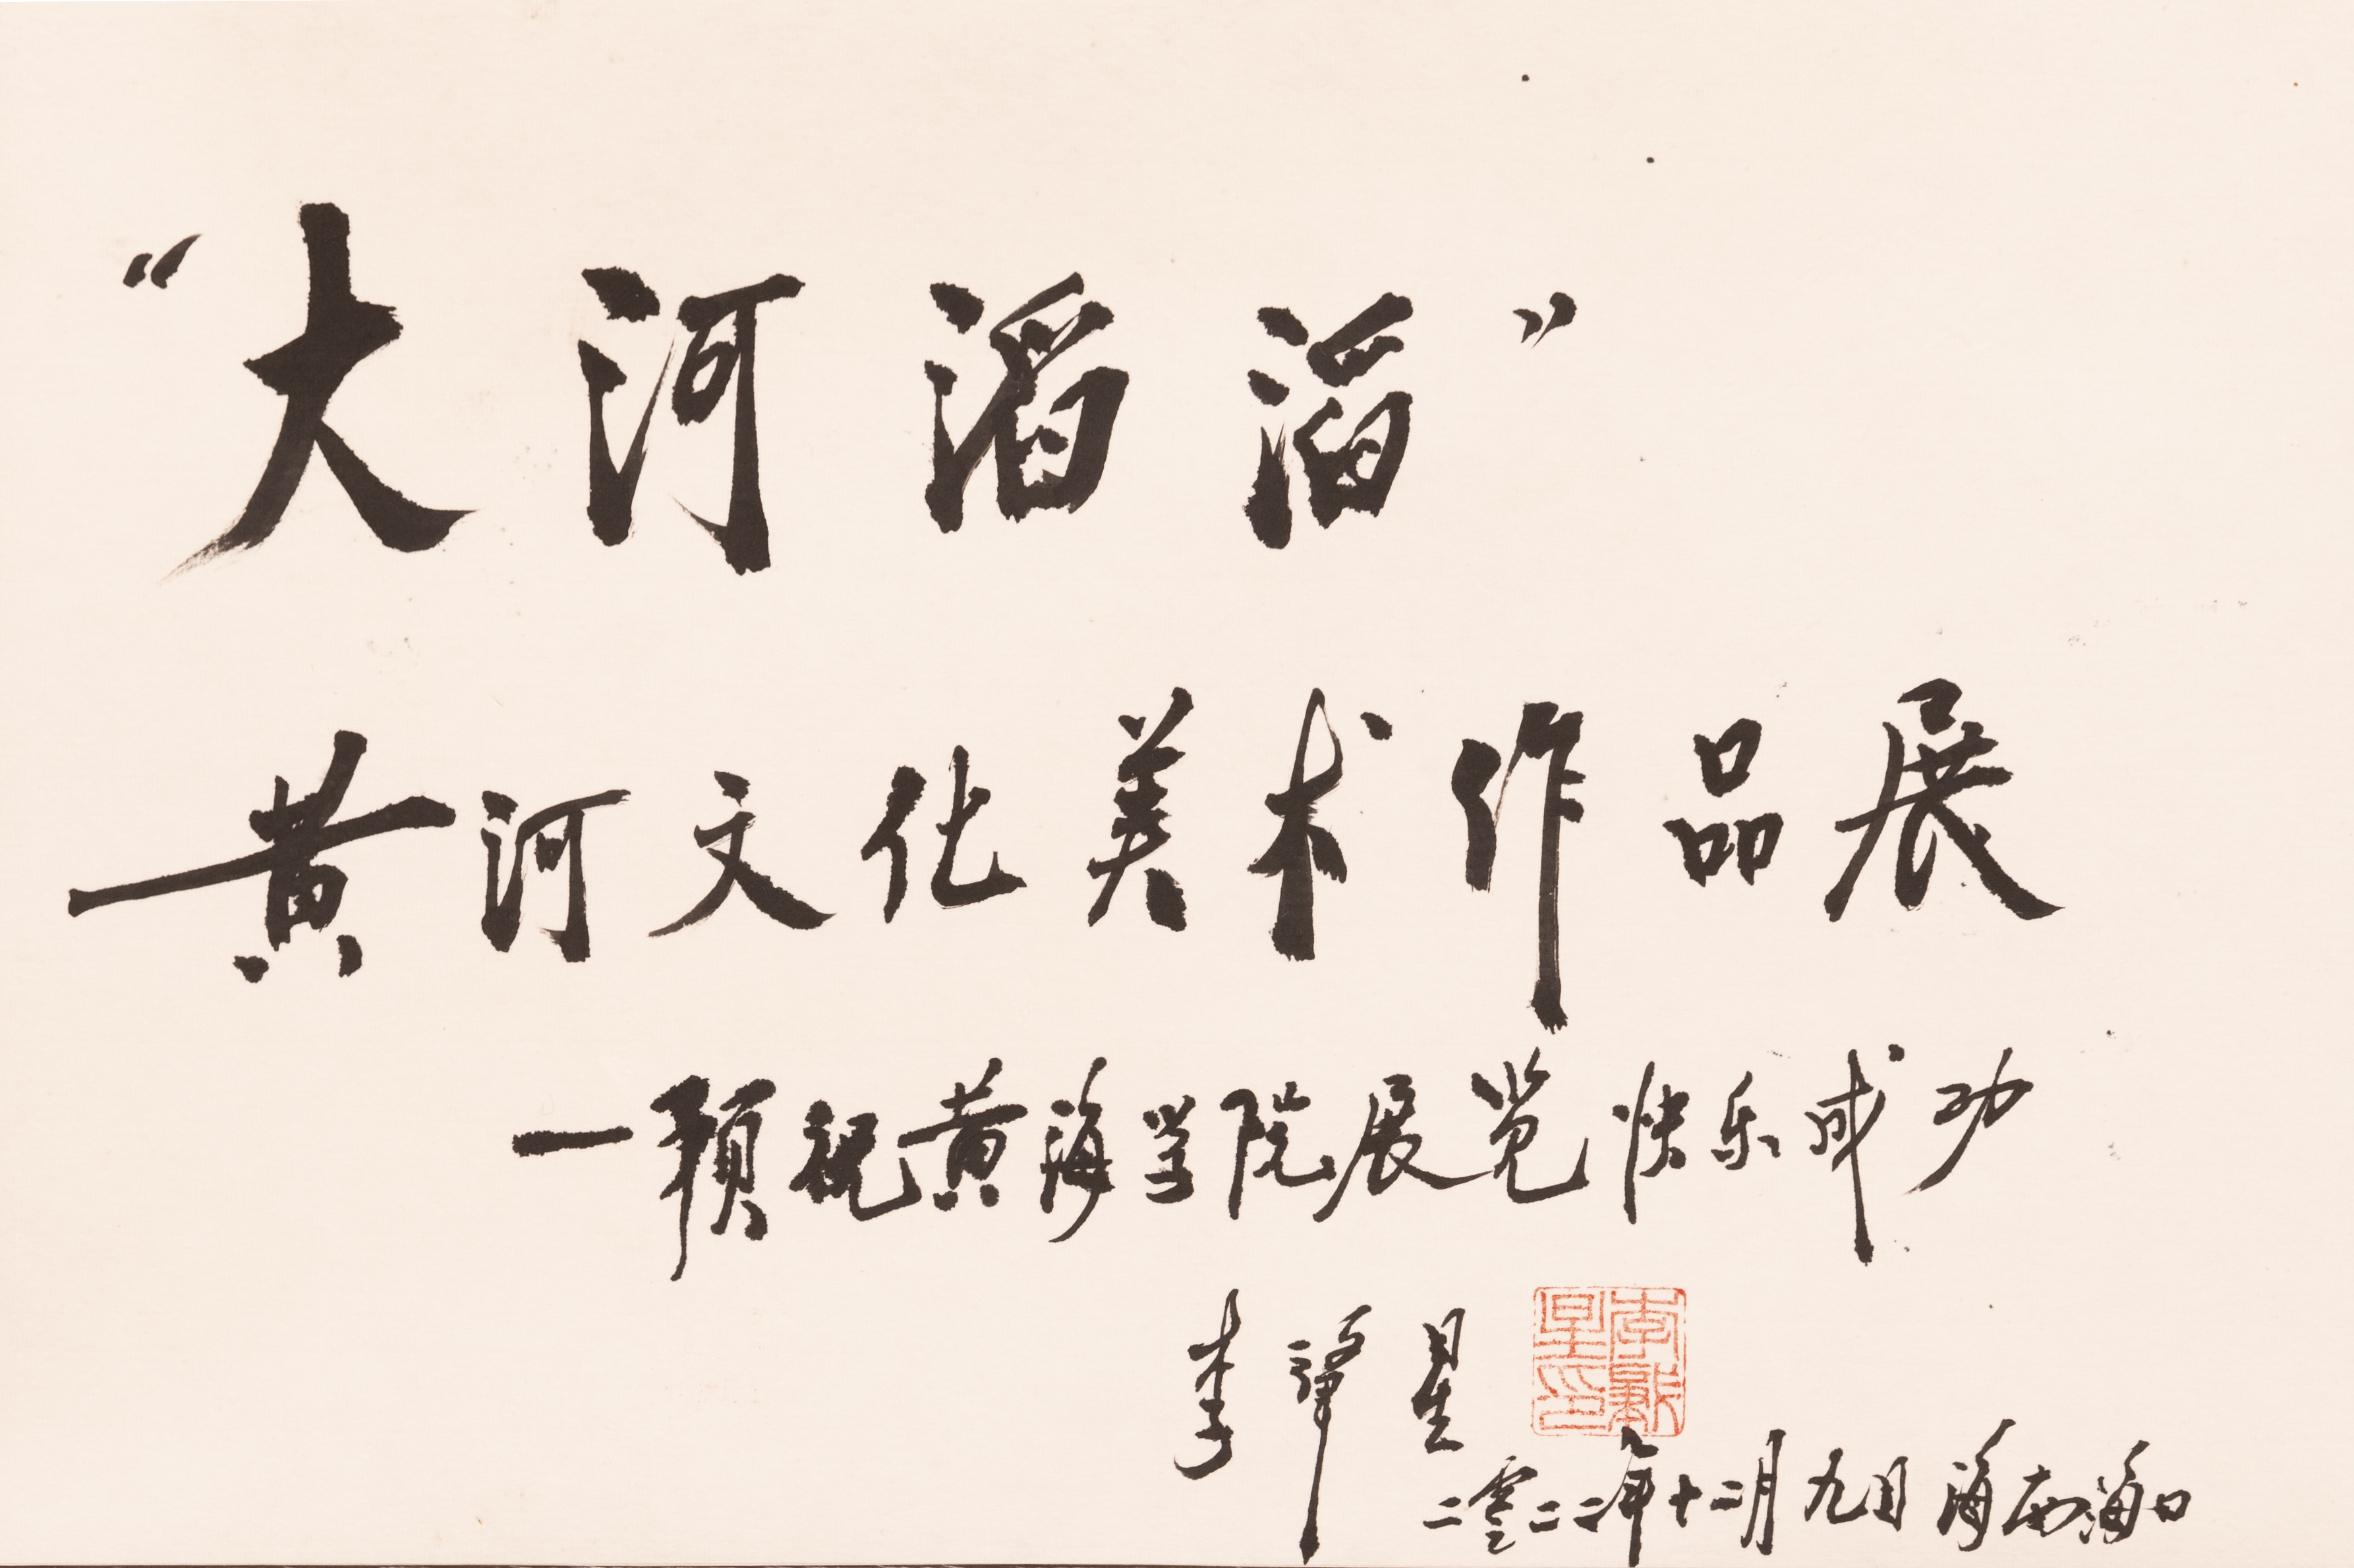 “大河滔滔”
黄河文化美术作品展
—預祝黄海学院展览快乐成功
李肇星
李肇星印
二零二二年十二月九日海南海口